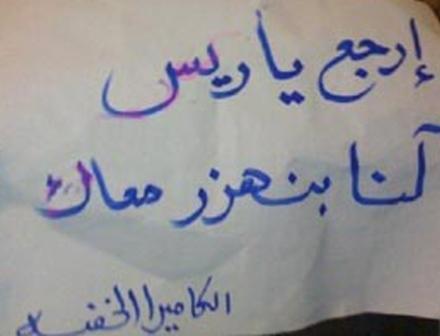 إرجع يا ريس
لنا بنهزر معاك
الكاميرا الخفيه